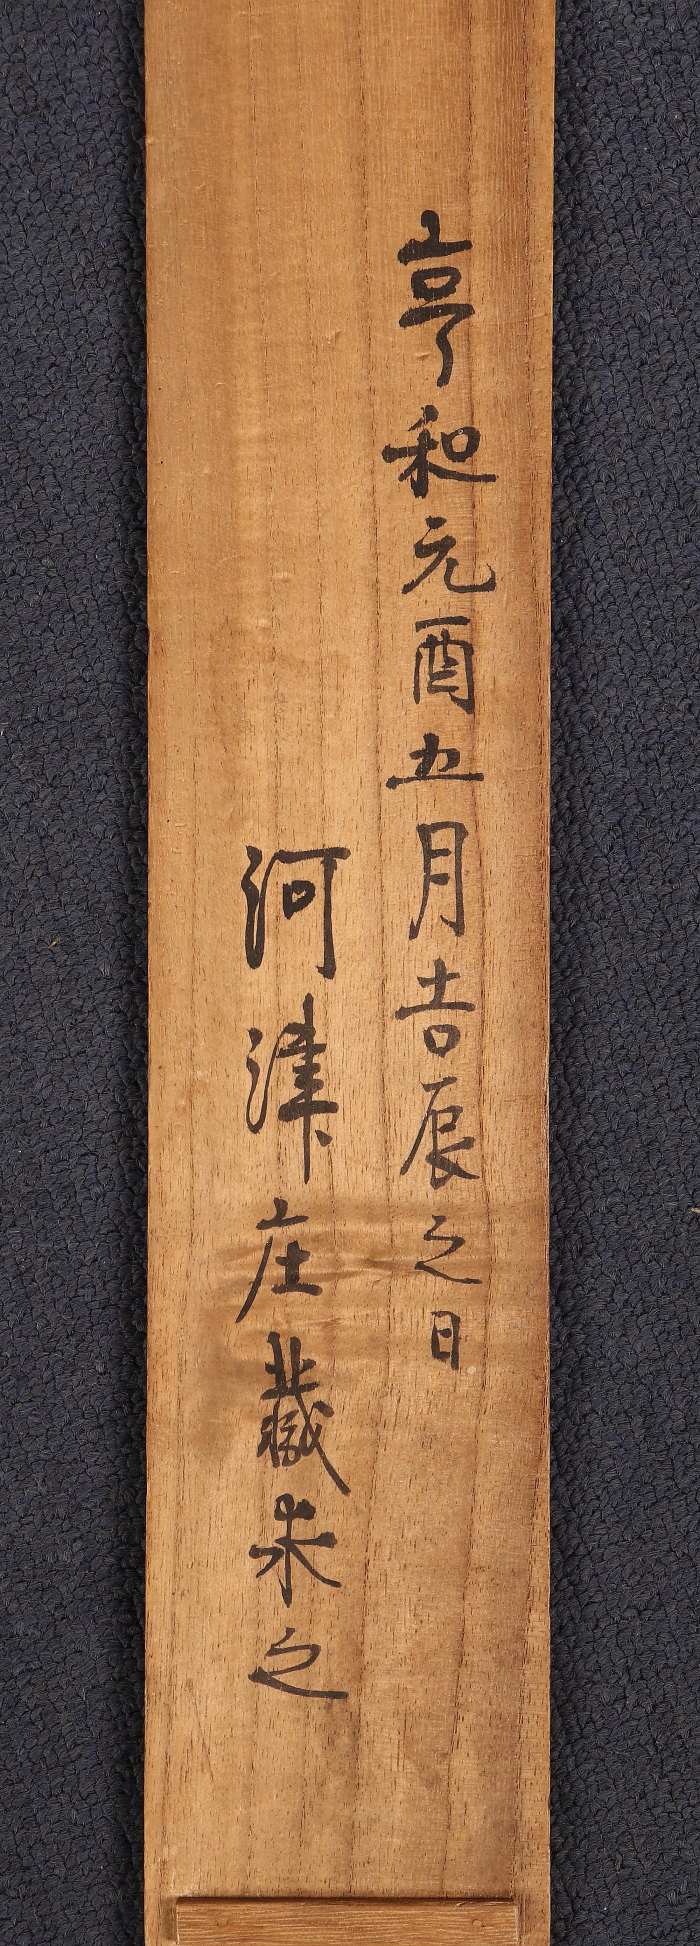 享和元酉五月吉辰之日
河津庄蔵求之